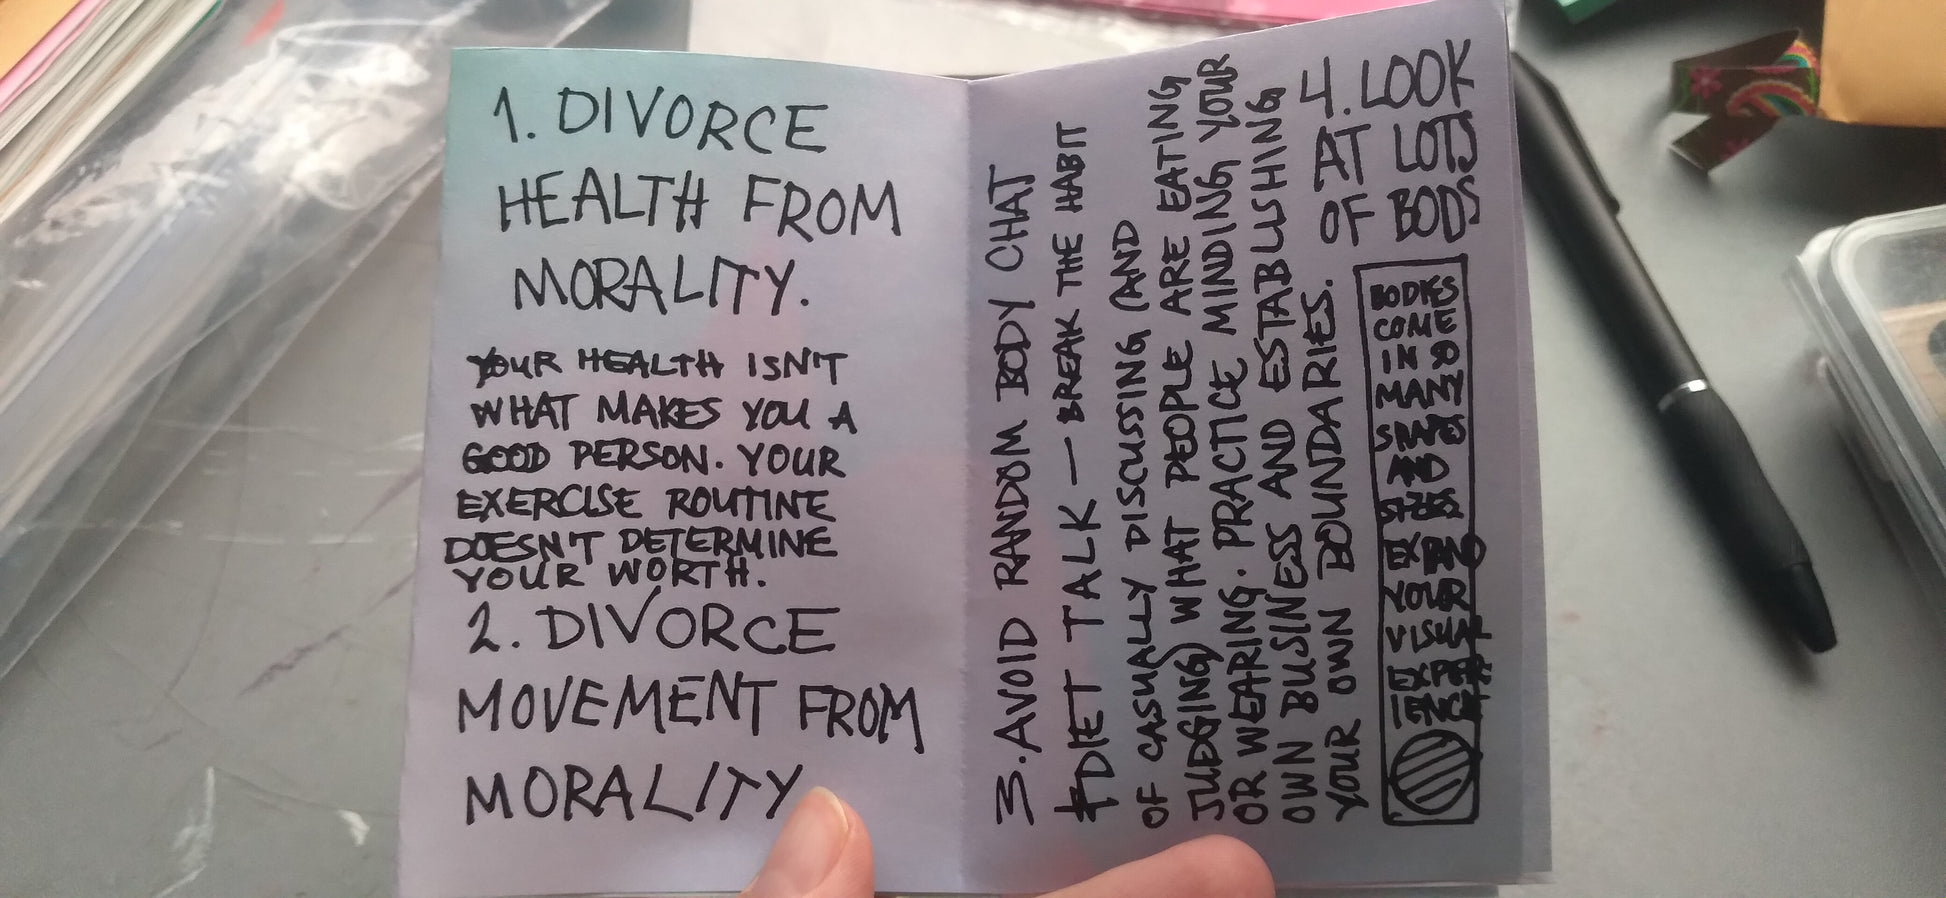 1. DIVORCE
HEALTH FROM
MORALITY.
YOUR HEALTH ISN'T
WHAT MAKES YOU A
GOOD PERSON. YOUR
EXERCISE ROUTINE
DOESN'T DETERMINE
YOUR WORTH.
2. DIVORCE
MOVEMENT FROM
MORALITY
3. AVOID RANDOM BODY CHAT
& DIET TALK — BREAK THE HABIT
OF CASUALLY DISCUSSING (AND
JUDGING) WHAT PEOPLE ARE EATING
OR WEARING. PRACTICE MINDING YOUR
OWN BUSINESS AND ESTABLISHING
YOUR OWN BOUNDARIES.
4. LOOK
AT LOTS
OF BODS
BODIES
COME
IN SO
MANY
SHAPES
AND
SIZES
EXPAND
YOUR
VISUAL
EXPER
IENCE